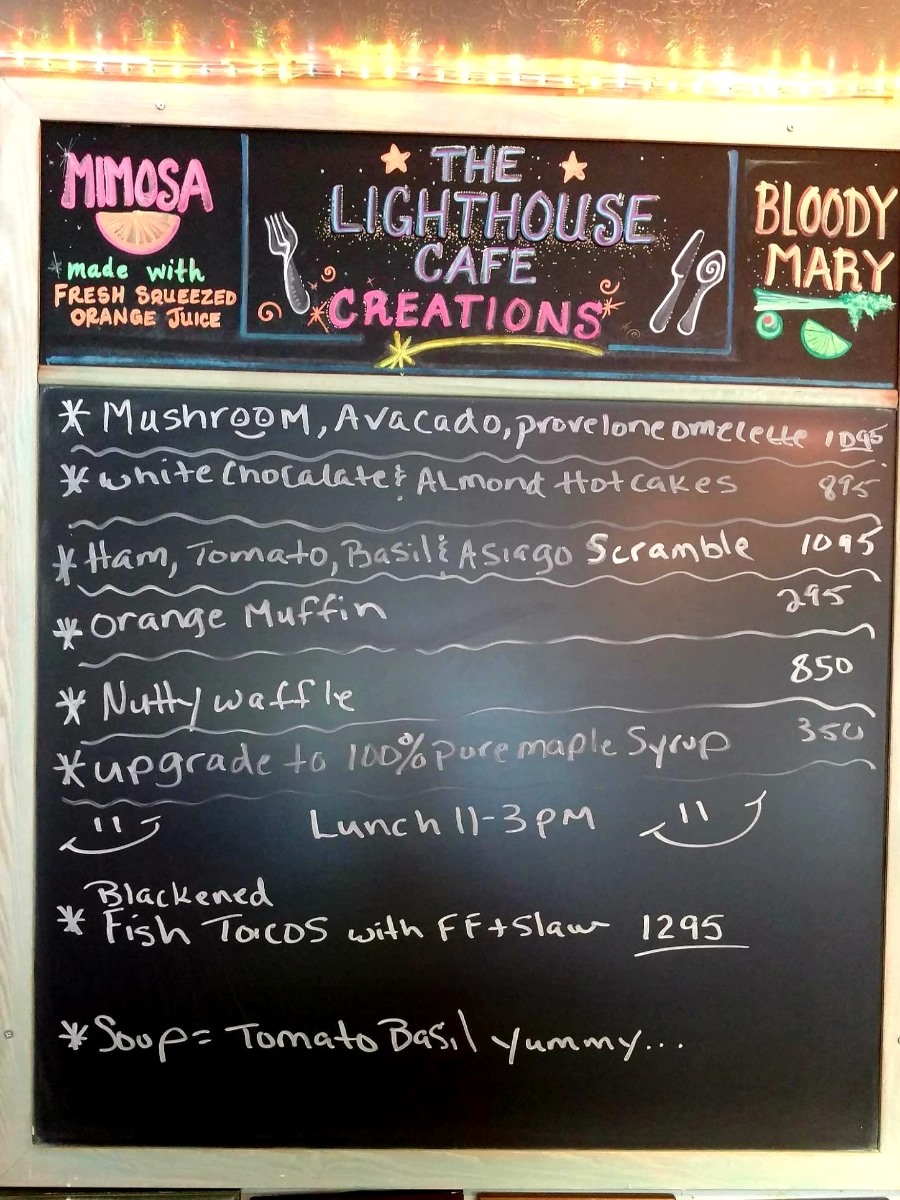 MIMOSA
made with
FRESH SQUEEZED
ORANGE JUICE
THE
LIGHTHOUSE
CAFE
CREATIONS
BLOODY
MARY
* Mushroom, Avacado, provelone omelette 1095
* white Chocalate & ALmond Hotcakes 895
* Ham, Tomato, Basil & Asiago Scramble 1095
* orange Muffin 295
* Nutty waffle 850
* upgrade to 100% pure maple Syrup 350
Lunch 11-3 pm
Blackened
* Fish Tacos with FF + Slaw 1295
* Soup = Tomato Basil yummy...